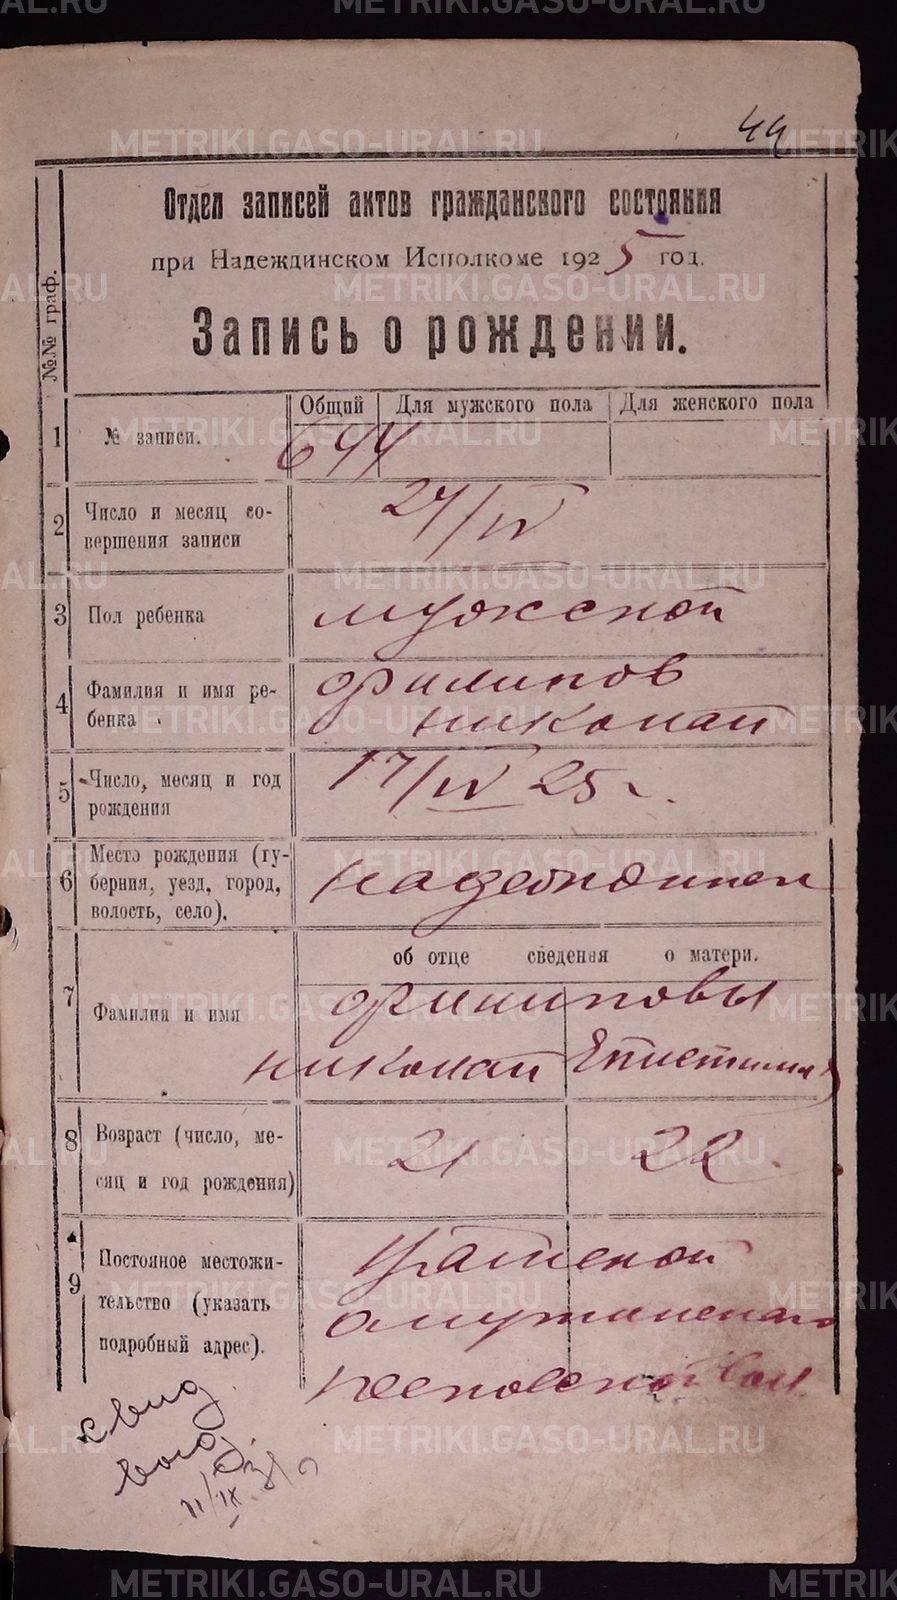 44
Отдел записей актов гражданского состояния
при Надеждинском Исполкоме 1925 год.
Запись о рождении.
№№ граф.
Общий Для мужского пола Для женского пола
1 № записи. 644
2 Число и месяц со-
вершения записи
24/IV
3 Пол ребенка мужской
4 Фамилия и имя ре-
бенка
Филипов
Николай
5 Число, месяц и год
рождения
17/IV 25 г.
6 Место рождения (гу-
берния, уезд, город,
волость, село).
Надеждинск
об отце сведения о матери.
7 Фамилия и имя
Филиповы
Николай Епистимия
8 Возраст (число, ме-
сяц и год рождения)
21 22
9 Постояное местожи-
тельство (указать
подробный адрес).
Вятской
Омутнинского
вол.
свид
выд.
11/IX
METRIKI.GASO-URAL.RU